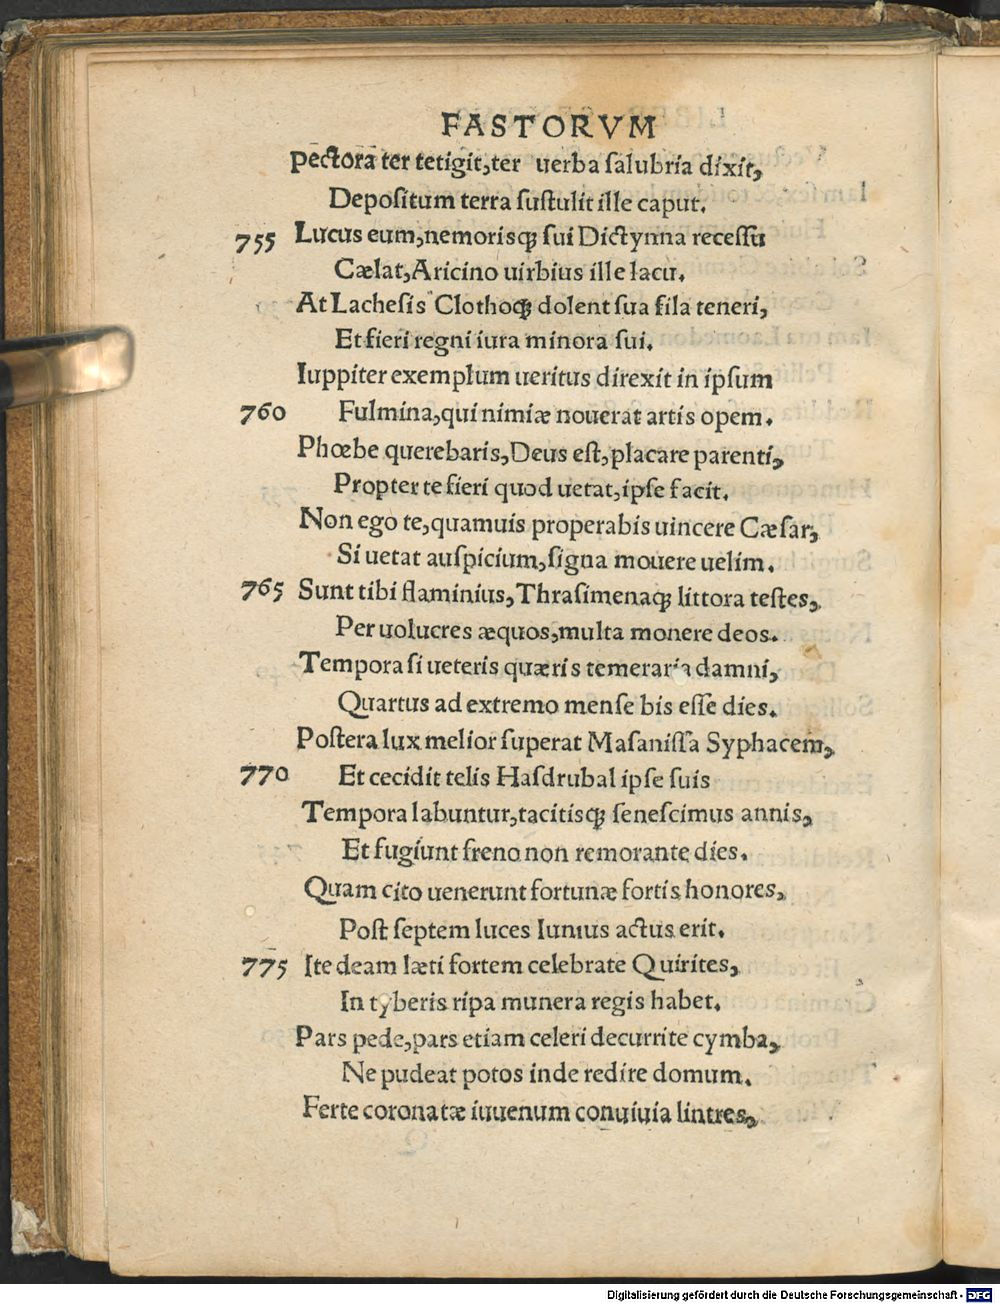 FASTORVM
pectora ter tetigit, ter uerba salubria dixit,
Depositum terra sustulit ille caput.
755 Lucus eum, nemorisq; sui Dictynna recessu
Cælat, Aricino uirbius ille lacu.
At Lachesis Clothoq; dolent sua fila teneri,
Et fieri regni iura minora sui.
Iuppiter exemplum ueritus direxit in ipsum
760 Fulmina, qui nimiæ nouerat artis opem.
Phœbe querebaris, Deus est, placare parenti,
Propter te fieri quod uetat, ipse facit.
Non ego te, quamuis properabis uincere Cæsar,
Si uetat auspicium, signa mouere uelim.
765 Sunt tibi flaminius, Thrasimenaq; littora testes,
Per uolucres æquos, multa monere deos.
Tempora si ueteris quæris temeraria damni,
Quartus ad extremo mense bis esse dies.
Postera lux melior superat Masanissa Syphacem,
770 Et cecidit telis Hasdrubal ipse suis
Tempora labuntur, tacitisq; senescimus annis,
Et fugiunt freno non remorante dies.
Quam cito uenerunt fortunæ fortis honores,
Post septem luces Iunius actus erit.
775 Ite deam læti fortem celebrate Quirites,
In tyberis ripa munera regis habet.
Pars pede, pars etiam celeri decurrite cymba,
Ne pudeat potos inde redire domum.
Ferte coronatæ iuuenum conuiuia lintres,
Digitalisierung gefördert durch die Deutsche Forschungsgemeinschaft - DFG